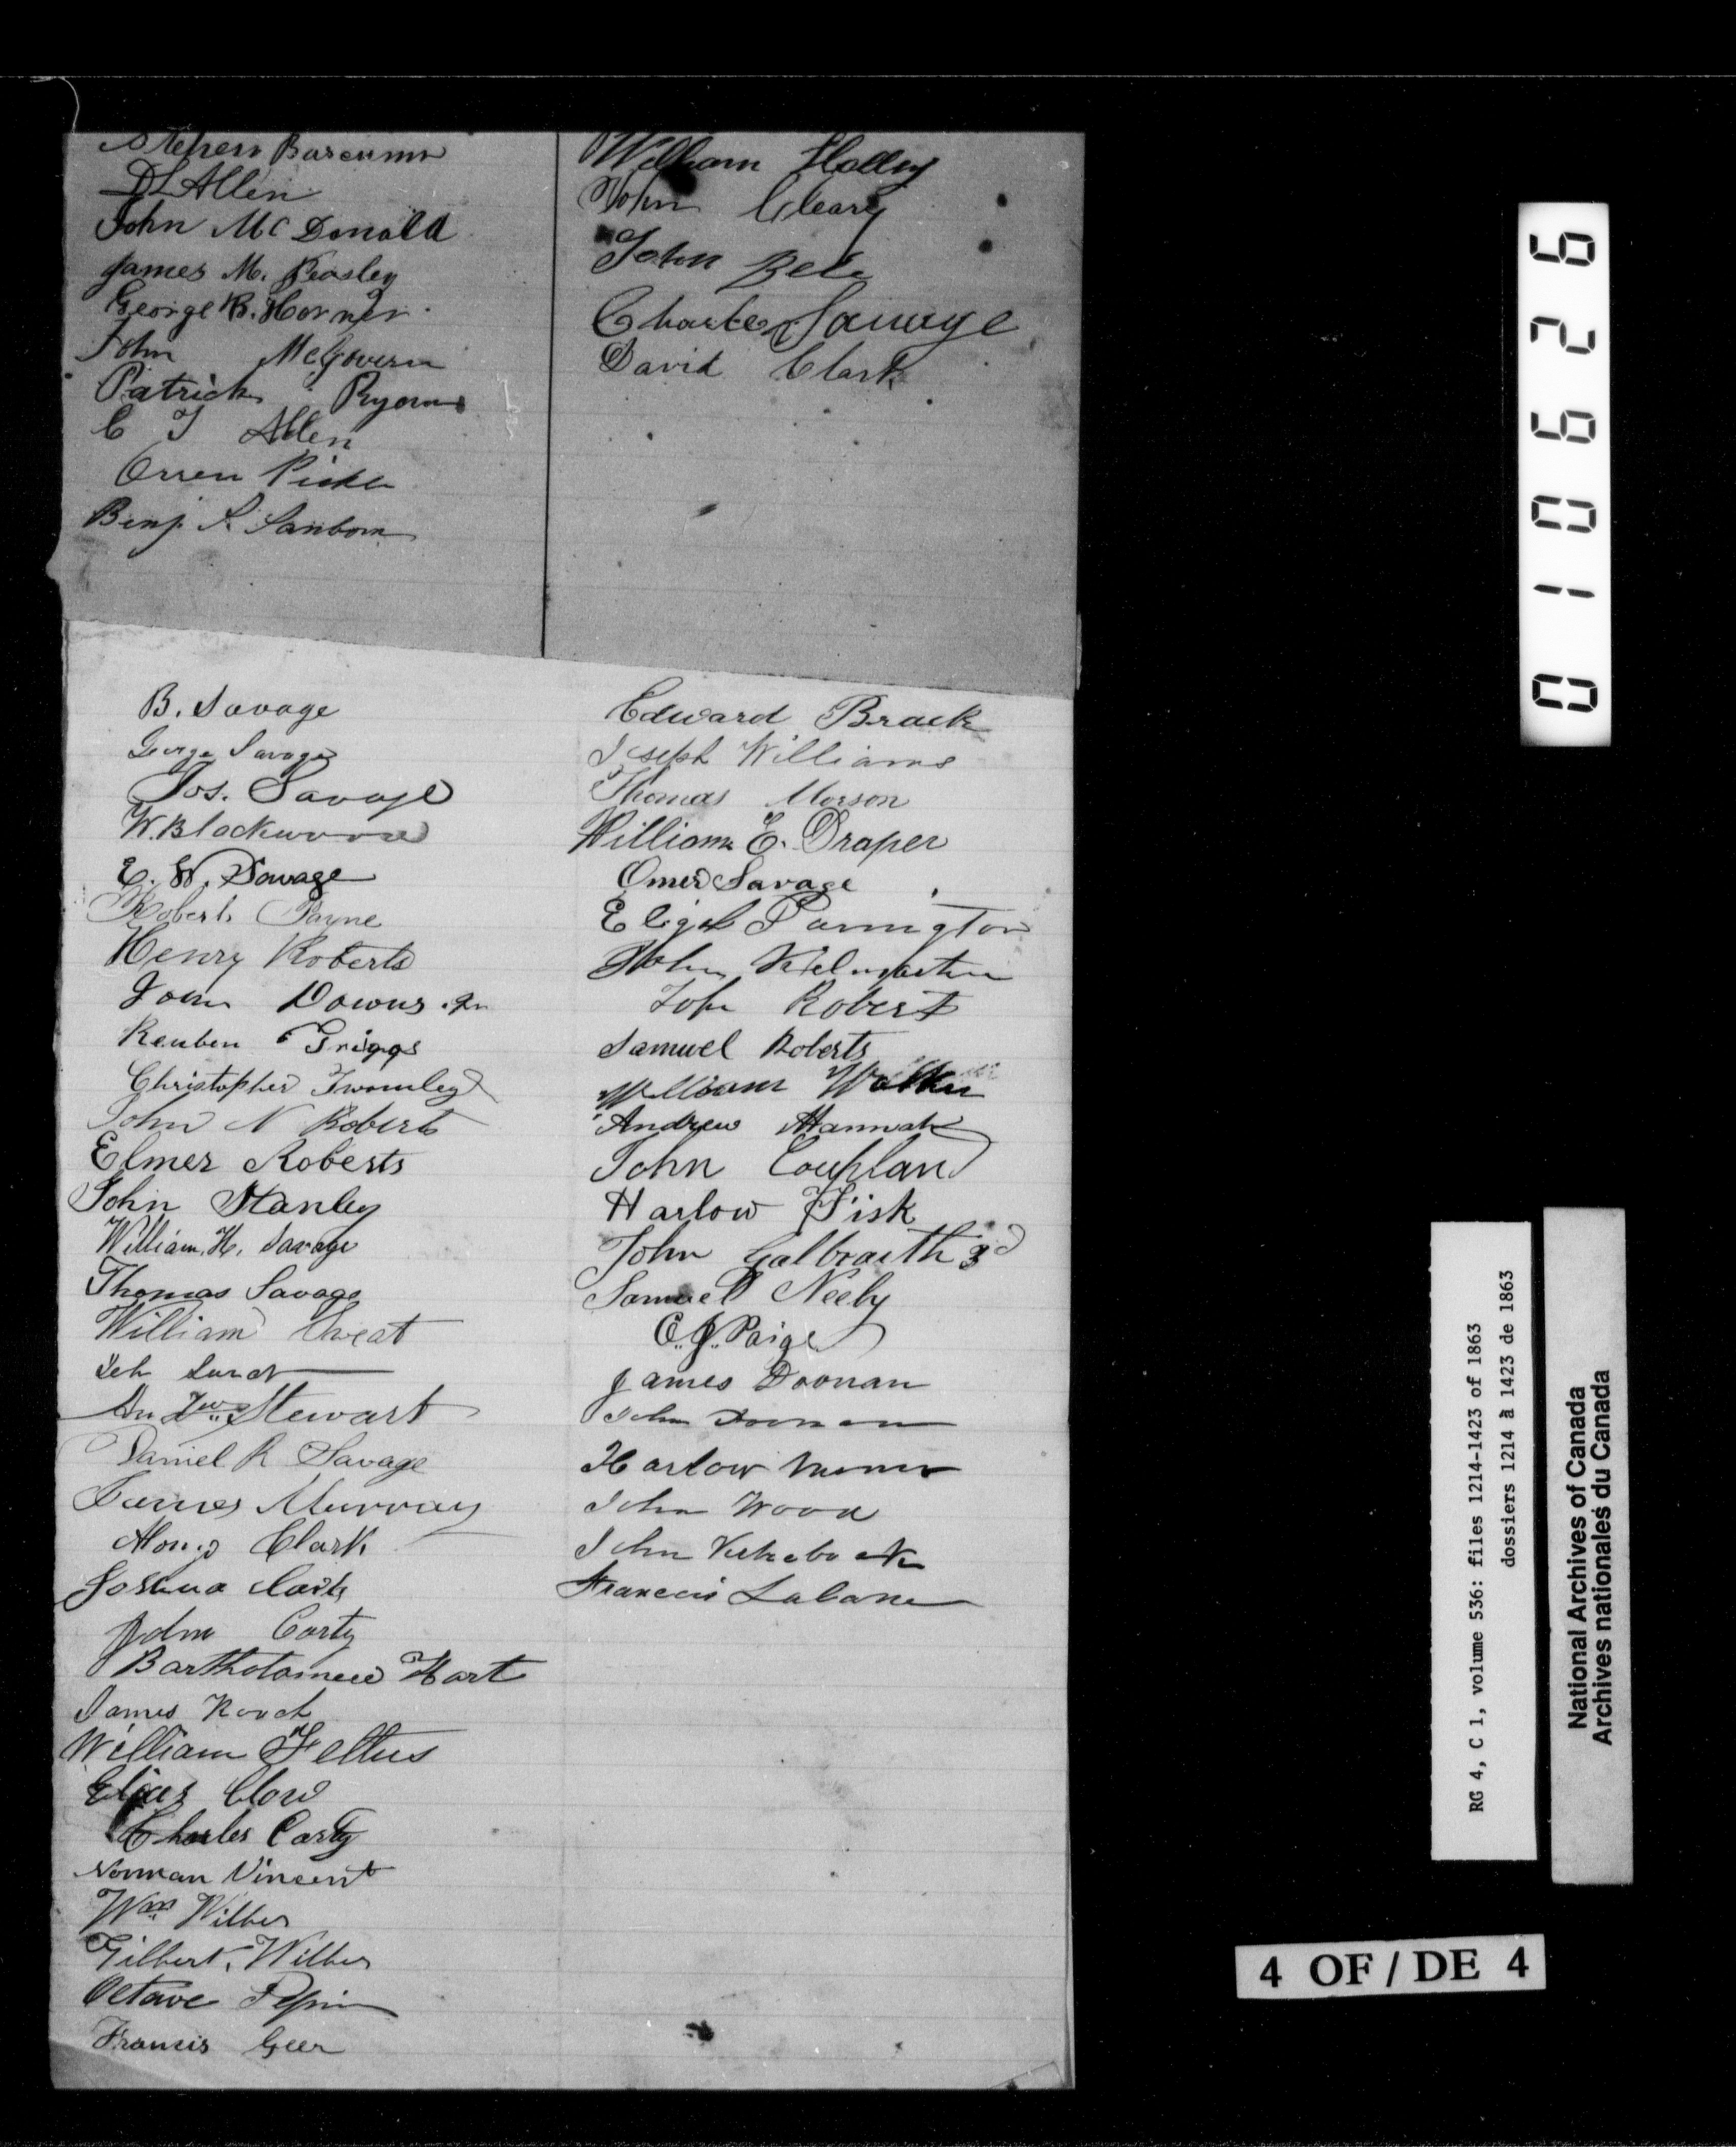 Stephen Barcumm
D L Allen
John McDonald
James M. Beasley
George B. Horner
John McGovern
Patrick Ryan
C T Allen
Orren Pickle
Benj. S. Sanborn
William Holley
John Cleary
John Bell
Charles Savage
David Clark
B. Savage
George Savage
Jos. Savage
W. Blackwood
E. W. Savage
Robert Payne
Henry Roberts
John Downs Jn
Reuben Griggs
Christopher Twomley
John N Roberts
Elmer Roberts
John Stanley
William H. Savage
Thomas Savage
William Sweat
Andrw Stewart
Daniel R Savage
James Murray
Alonzo Clark
Joshua Clark
John Carty
Bartholomew Hart
James Roach
William Feltus
Elias Clow
Charles Carty
Norman Vincent
Wm Wilber
Gilbert Wilber
Octave Pepin
Francis Geer
Edward Brack
Joseph Williams
Thomas Morson
William E. Draper
Omer Savage
Elijah Parrington
John Kilmartin
John Robert
Samuel Roberts
William Walker
Andrew Hannah
John Couphland
Harlow Fisk
John Galbraith 3d
Samuel Neely
C. J. Paige
James Doonan
John Doonan
Harlow Miner
John Wood
John
Francis Labane
010626
RG 4, C 1, volume 536: files 1214-1423 of 1863
dossiers 1214 à 1423 de 1863
National Archives of Canada
Archives nationales du Canada
4 OF / DE 4